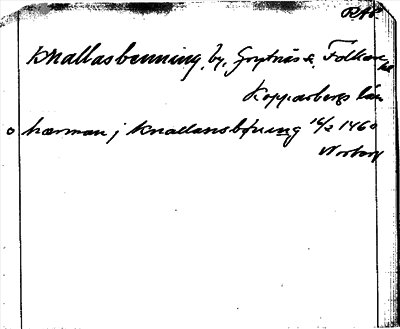 RAP.
Knallasbenning, by, Grytnäs s., Folkare hd
Kopparbergs län
o hærman j knallansbþning 16/2 1460
Norberg